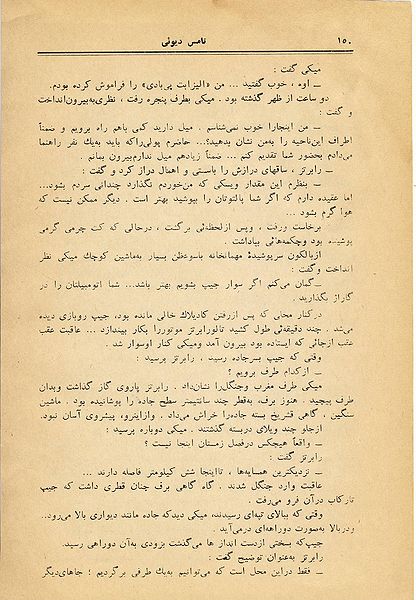 ۱۵۰ تامس دیوئی
میکی گفت :
ــ اوه ، خوب گفتید ... من «الیزابت پی‌بادی» را فراموش کرده بودم.
دو ساعت از ظهر گذشته بود . میکی بطرف پنجره رفت ، نظری‌به‌بیرون‌انداخت
و گفت :
ــ من اینجارا خوب نمی‌شناسم . میل دارید کمی باهم راه برویم و ضمناً
اطراف این‌ناحیه را به‌من نشان بدهید؟... حاضرم پولی‌راکه باید به‌یك نفر راهنما
می‌دادم بحضور شما تقدیم کنم ... ضمناً زیادهم میل ندارم‌بیرون بمانم .
ــ رابرتز ، ساقهای درازش را باسستی و اهمال دراز کرد و گفت :
ــ بنظرم این مقدار ویسکی که من‌خوردم نگذارد چندانی سردم بشود...
اما عقیده دارم که اگر شما پالتوتان را بپوشید بهتر است . دیگر ممکن نیست که
هوا گرم بشود ...
برخاست ورفت ، وپس ازلحظه‌ئی برگشت ، درحالی که کت چرمی گرمی
پوشیده بود وچکمه‌هائی بپاداشت .
ازبالکون سرپوشیدهٔ مهمانخانه باسوءظن بسیار به‌ماشین کوچك میکی نظر
انداخت وگفت :
ــ گمان می‌کنم اگر سوار جیپ بشویم بهتر باشد... شما اتومبیلتان را در
گاراژ بگذارید .
درکنار محلی که پس ازرفتن کادیلاك خالی مانده بود، جیپ روبازی دیده
می‌شد . چند دقیقه‌ئی طول کشید تالورابرتز موتوررا بکار بیندازد ... عاقبت عقب
عقب ازجائی که ایستاده بود بیرون آمد ومیکی کنار اوسوار شد .
وقتی که جیپ بسرجاده رسید ، رابرتز پرسید :
ــ ازکدام طرف برویم ؟
میکی طرف مغرب وجنگل‌را نشان‌داد . رابرتز پاروی گاز گذاشت وبدان
طرف پیچید . هنوز برف، به‌قطر چند سانتیمتر سطح جاده را پوشانیده بود . ماشین
سنگین ، گاهی قشریخ بسته جاده‌را خراش می‌داد . وازاینرو، پیشروی آسان نبود.
ازجلو چند ویلای دربسته گذشتند . میکی دوباره پرسید :
ــ واقعاً هیچکس درفصل زمستان اینجا نیست ؟
رابرتز گفت :
ــ نزدیکترین همسایه‌ها ، تااینجا شش کیلومتر فاصله دارند ...
عاقبت وارد جنگل شدند . گاه گاهی برف چنان قطری داشت که جیپ
تارکاب درآن فرو می‌رفت .
وقتی که ببالای تپه‌ای رسیدند، میکی دیدکه جاده مانند دیواری بالا می‌رود..
ودربالا به‌صورت دوراهه‌ای درمی‌آید .
جیپ‌که بسختی ازدست انداز ها می‌گذشت بزودی به‌آن دوراهی رسید.
رابرتز به‌عنوان توضیح گفت :
ــ فقط دراین محل است که می‌توانیم به‌یك طرفی برگردیم ؛ جاهای‌دیگر